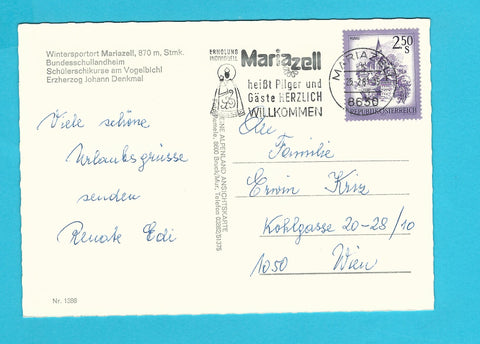 Wintersportort Mariazell, 870 m, Stmk.
Bundesschullandheim
Schülerschikurse am Vogelbichl
Erzherzog Johann Denkmal
ERHOLUNG
INDIVIDUELL
Mariazell
heißt Pilger und
Gäste HERZLICH
WILLKOMMEN
MARIAZELL
8630
2.50
S
REPUBLIK ÖSTERREICH
Viele schöne
Urlaubsgrüsse
senden
Renate Edi
An
Familie
Erwin Kriz
Kohlgasse 20-28/10
1050 Wien
EINE ALPENLAND ANSICHTSKARTE
8600 Bruck/Mur, Telefon 03862/51375
Nr. 1388